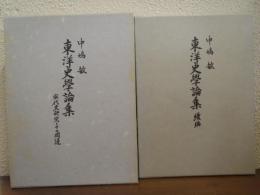 中嶋敏
東洋史學論集
宋代史研究とその周辺
中嶋敏
東洋史學論集 續編